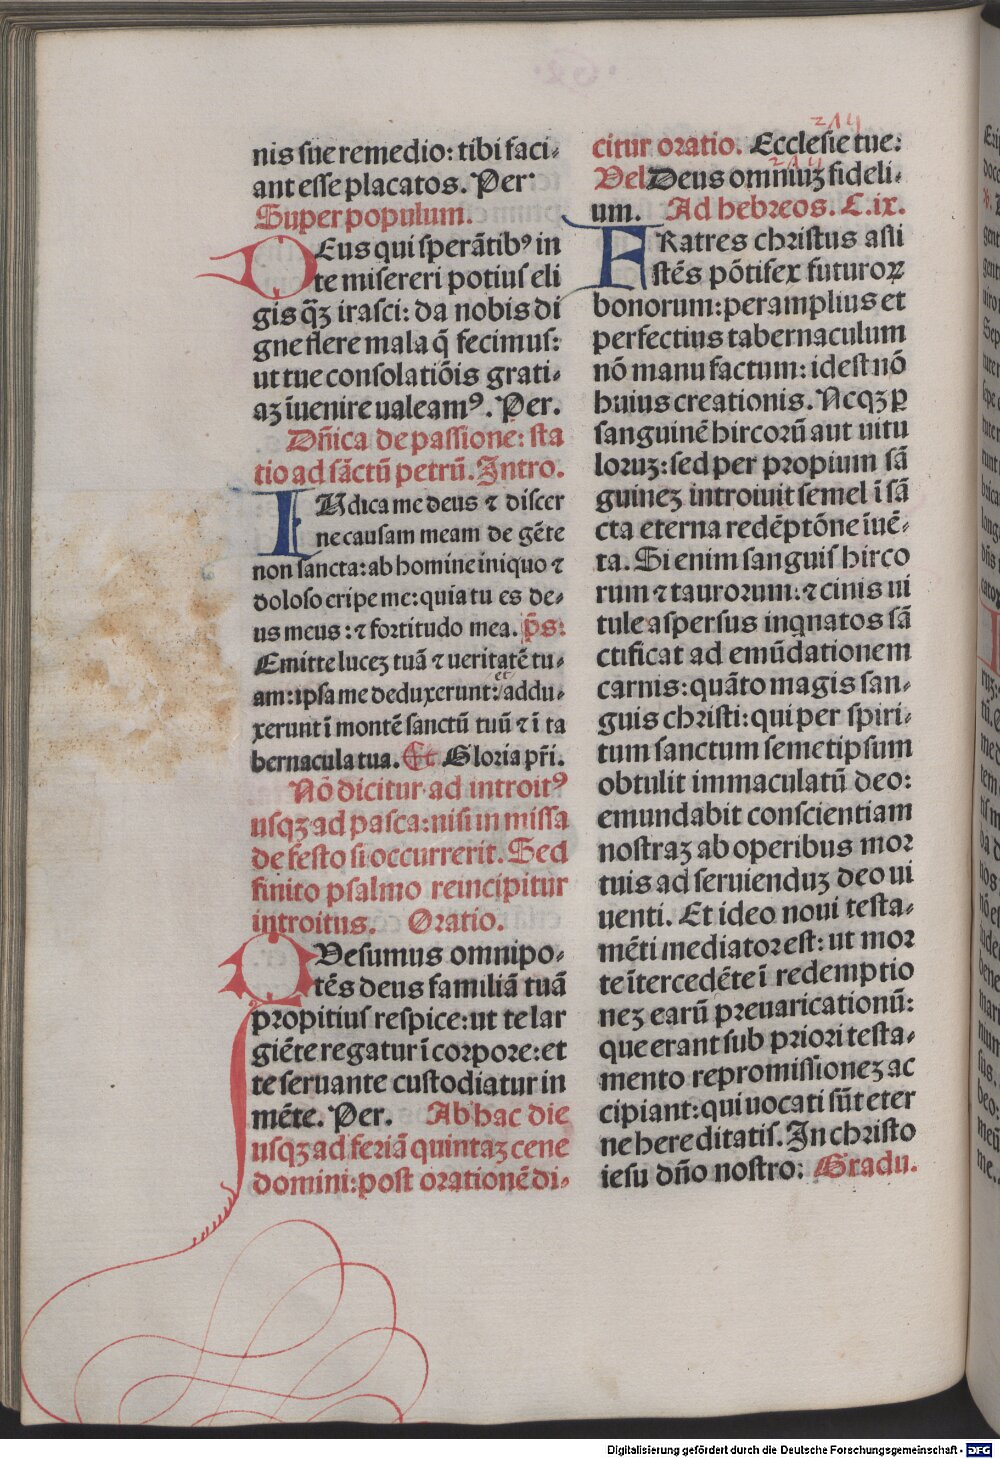 nis sue remedio: tibi faci-
ant esse placatos. Per
Super populum.
DEus qui sperātibꝰ in
te misereri potius eli
gis q̄ꝫ irasci: da nobis di
gne flere mala q̄ fecimus:
ut tue consolatiōis grati-
aꝫ īuenire ualeamꝰ. Per.
Dn̄ica de passione: sta
tio ad sāctū petrū. Intro.
IUdica me deus ⁊ discer
ne causam meam de gēte
non sancta: ab homine iniquo ⁊
doloso eripe me: quia tu es de-
us meus: ⁊ fortitudo mea. p̄s:
Emitte luceꝫ tuā ⁊ ueritatē tu-
am: ipsa me deduxerunt: et addu-
xerunt ī montē sanctū tuū ⁊ ī ta
bernacula tua. Et Gloria pr̄i.
Nō dicitur ad introitꝰ
usqꝫ ad pasca: nisi in missa
de festo si occurrerit. Sed
finito psalmo reincipitur
introitus. Oratio.
QUesumus omnipo-
tēs deus familiā tuā
propitius respice: ut te lar
giēte regatur ī corpore: et
te seruante custodiatur in
mēte. Per. Ab hac die
usqꝫ ad feriā quintaꝫ cene
domini: post orationē di-
214
citur oratio. Ecclesie tue:
214
Vel Deus omniuꝫ fideli-
um. Ad hebreos. C. ix.
FRatres christus assi
stēs pōtifex futuroꝝ
bonorum: per amplius et
perfectius tabernaculum
nō manu factum: id est nō
huius creationis. Neqꝫ ꝑ
sanguinē hircorū aut uitu
loruꝫ: sed per propium sā
guineꝫ introiuit semel ī sā
cta eterna redēptōne īuē-
ta. Si enim sanguis hirco
rum ⁊ taurorum: ⁊ cinis ui
tule aspersus inqnatos sā
ctificat ad emūdationem
carnis: quāto magis san-
guis christi: qui per spiri-
tum sanctum semetipsum
obtulit immaculatū deo:
emundabit conscientiam
nostraꝫ ab operibus mor
tuis ad seruienduꝫ deo ui
uenti. Et ideo noui testa-
mēti mediator est: ut mor
te ītercedēte ī redemptio
neꝫ earū preuaricationū:
que erant sub priori testa-
mento repromissioneꝫ ac
cipiant: qui uocati sūt eter
ne hereditatis. In christo
iesu dn̄o nostro: Gradu.
Digitalisierung gefördert durch die Deutsche Forschungsgemeinschaft - DFG